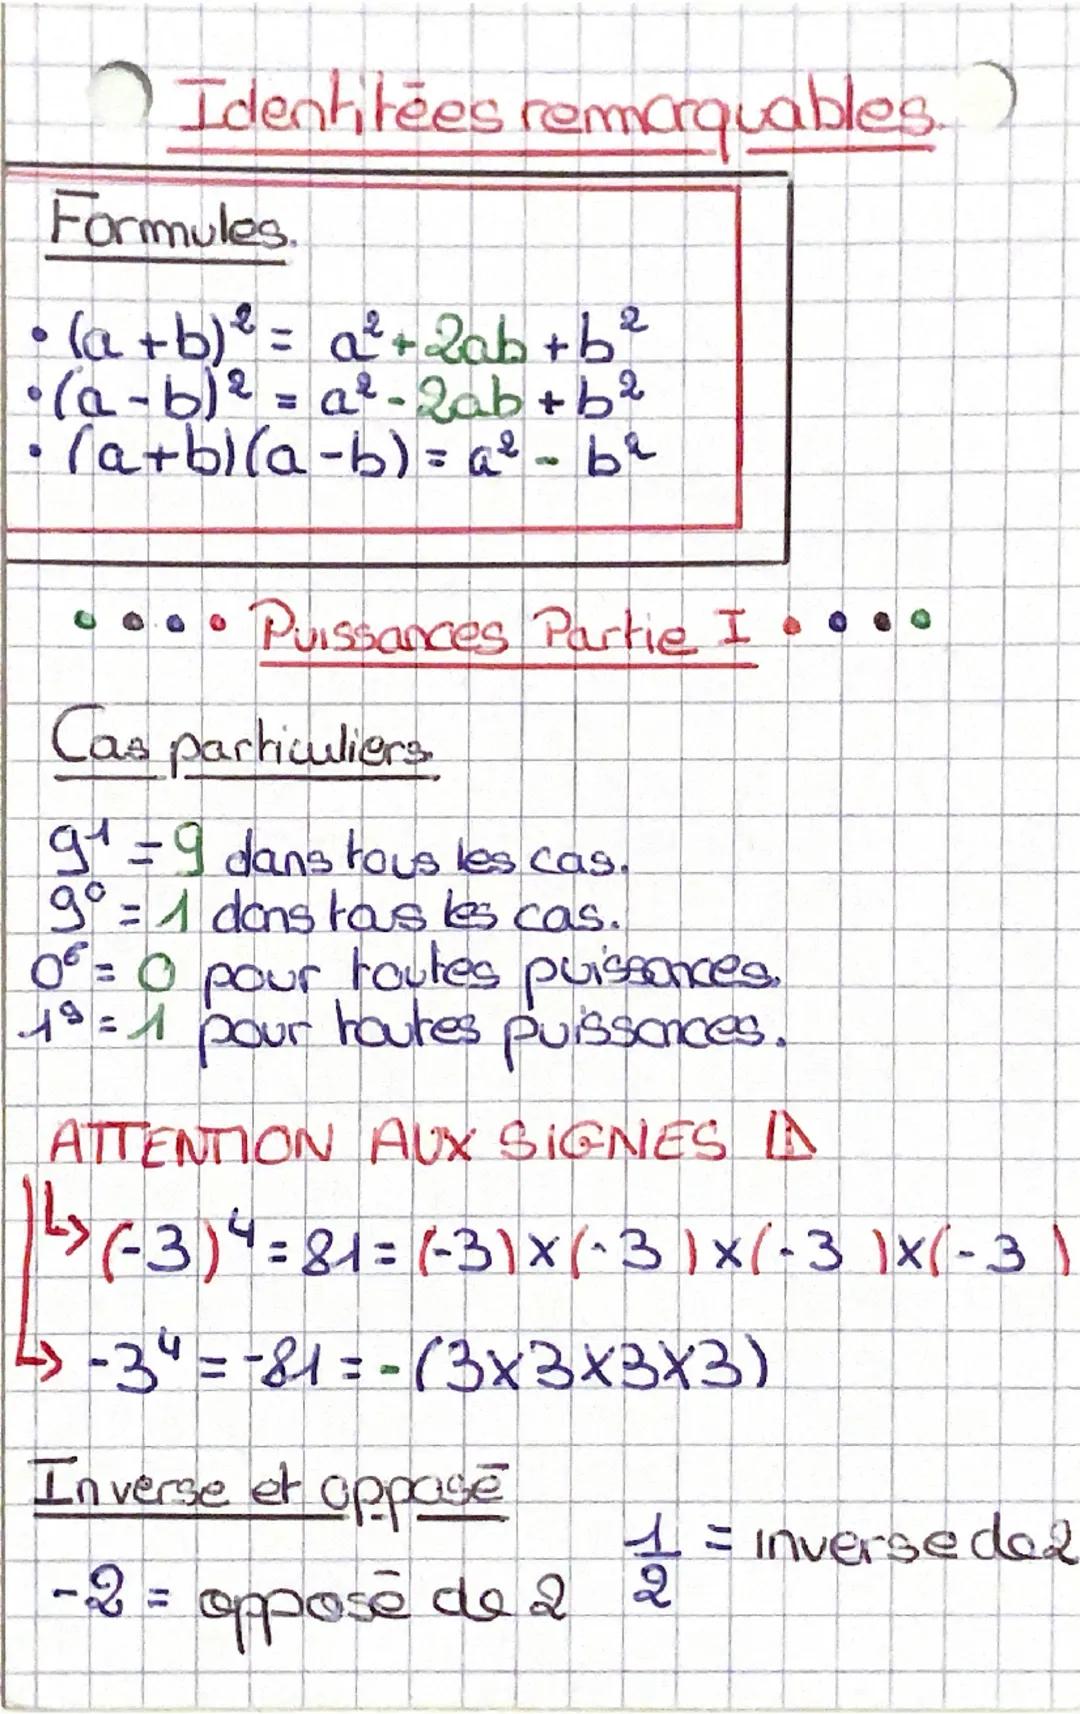 Identitées remarquables.
Formules.
• (a+b)² = a² + 2ab + b²
• (a-b)² = a² - 2ab + b²
• (a+b)(a-b) = a² - b²
Puissances Partie I
Cas particuliers
9¹ = 9 dans tous les cas.
9⁰ = 1 dans tous les cas.
0⁶ = 0 pour toutes puissances.
1⁹ = 1 pour toutes puissances.
ATTENTION AUX SIGNES ⚠
↳ (-3)⁴ = 81 = (-3)×(-3)×(-3)×(-3)
↳ -3⁴ = -81 = -(3×3×3×3)
Inverse et opposé
-2 = opposé de 2
1/2 = inverse de 2